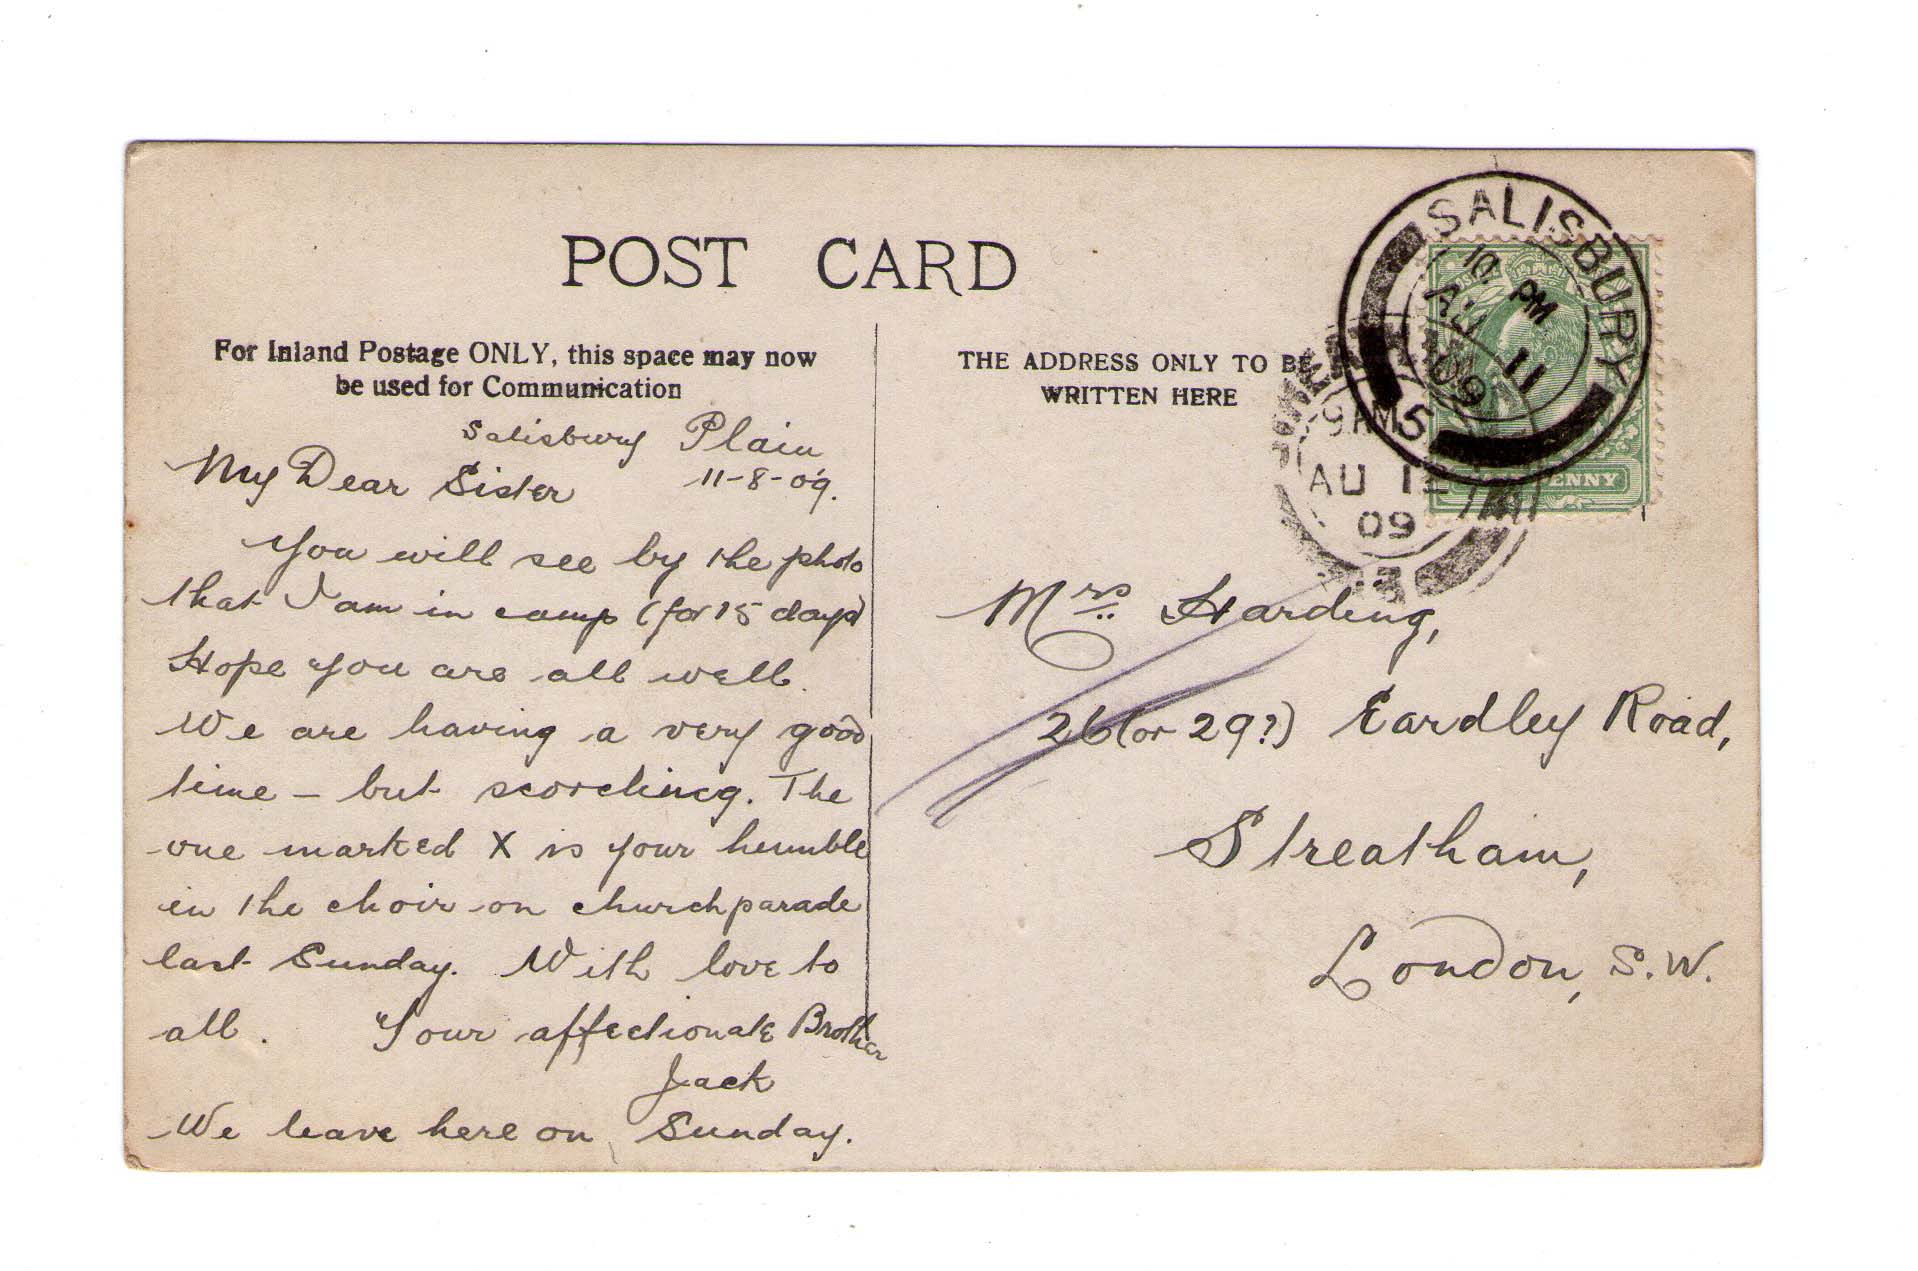 POST CARD
For Inland Postage ONLY, this space may now
be used for Communication
THE ADDRESS ONLY TO BE
WRITTEN HERE
SALISBURY
10. PM
AU 11
09
5
9 AM
AU 12
09
PENNY
Salisbury Plain
11-8-09.
My Dear Sister
You will see by the photo
that I am in camp (for 15 days)
Hope you are all well.
We are having a very good
time - but scorching. The
one marked X is your humble
in the choir on church parade
last Sunday. With love to
all. Your affectionate Brother
Jack
We leave here on Sunday.
Mrs Harding,
26 (or 29?) Eardley Road,
Streatham,
London, S.W.